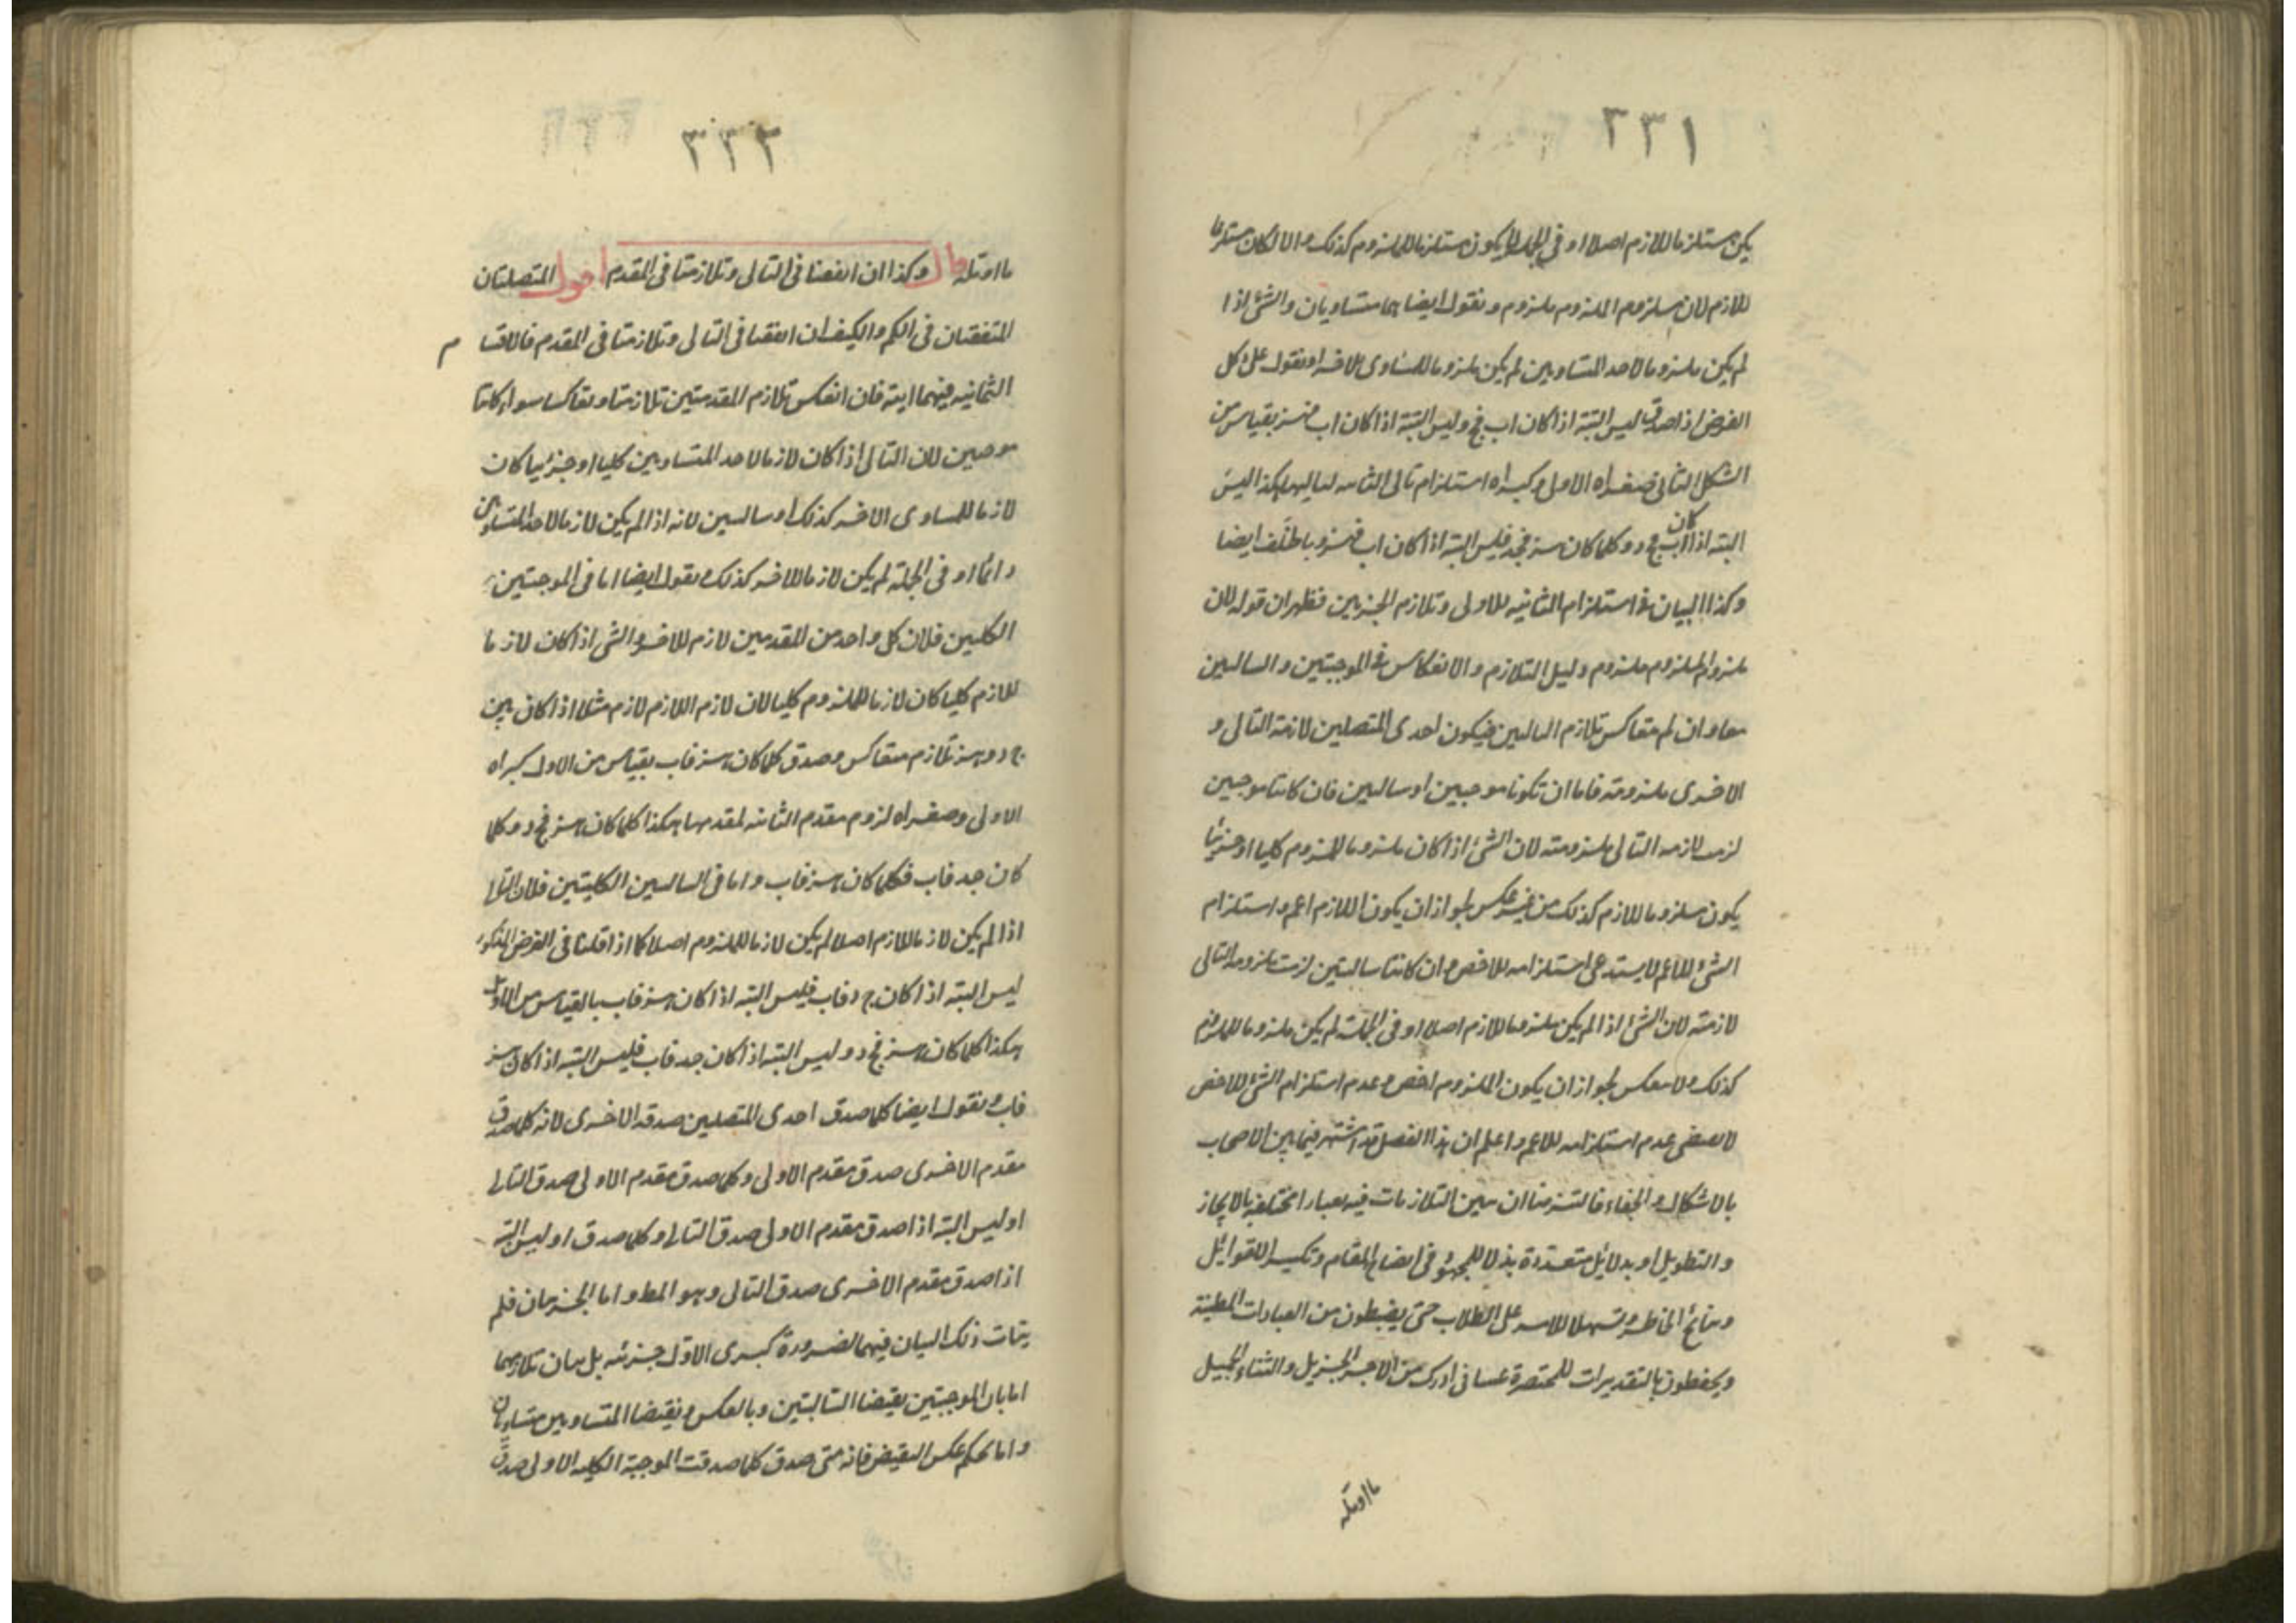 ٢٣١
يكن مستلزما للازم اصلا او في الجملة لا يكون مستلزما للملزوم كذلك والا لكان مستلزما
للازم لان ملزوم الملزوم ملزوم ونقول ايضا هما متساويان والشئ اذا
لم يكن ملزوما لاحد المتساويين لم يكن ملزوما للمساوى الاخر او نقول على كل
الفرض اذا صدق ليس البتة اذا كان اب فج وليس البتة اذا كان اب فهز بقياس من
الشكل الثانى صغراه الاولى وكبراه استلزام تالى الثانيه لتاليها هكذا ليس
البته اذا كان اب فج د وكلما كان هز فجد فليس البته اذا كان اب فهز وباطلف ايضا
وكذا البيان فى استلزام الثانيه للاولى وتلازم الجزئين فظهر ان قوله لان
ملزوم الملزوم ملزوم دليل التلازم والانعكاس فى الموجبتين والسالبين
معا وان لم يتعاكس تلازم التاليين فيكون احدى المتصلين لازمة التالى و
الاخرى ملزومته فاما ان تكونا موجبين او سالبين فان كانتا موجبين
لزمت لازمه التالى ملزومته لان الشئ اذا كان ملزوما للملزوم كليا او جزئيا
يكون ملزوما للازم كذلك من غير عكس لجواز ان يكون اللازم اعم واستلزام
الشئ للاعم لا يستدعى استلزامه للاخص وان كانتا سالبتين لزمت ملزومه التالى
لازمته لان الشئ اذا لم يكن ملزوما للازم اصلا او فى الجملة لم يكن ملزوما للملزوم
كذلك ولا ينعكس لجواز ان يكون الملزوم اخص وعدم استلزام الشئ للاخص
لا يقتضى عدم استلزامه للاعم واعلم ان هذا الفصل قد اشتهر فيما بين الاصحاب
بالاشكال والخفاء فالتزمنا ان نبين التلازمات فيه بعبار مختلفه بالايجاز
والتطويل او بدلائل متعددة بذلا للجهد فى ايضاح المقام وتكسيرا للقوائل
ونتائج الخاطر وتسهيلا للامر على الطلاب حتى يضبطون من العبارات المطنبة
ويحفظون بالتقديرات المختصرة عسانى ادرك من الاجر الجزيل والثناء الجميل
ما اوتله
٢٣٢
ما اوتله قال وكذا ان اتفقتا فى التالى وتلازمتا فى المقدم اقول المتصلتان
المتفقتان فى الكم والكيف ان اتفقتا فى التالى وتلازمتا فى المقدم فالاقسا م
الثمانيه فيهما ايته فان انعكس تلازم المقدمتين تلازمتا وتعاكسا سواء كانتا
موجبين لان التالى اذا كان لازما لاحد المتساويين كليا او جزئيا كان
لازما للمساوى الاخر كذلك او سالبين لانه اذا لم يكن لازما لاحد المتساوين
دائما او فى الجملة لم يكن لازما للاخر كذلك ونقول ايضا اما فى الموجبتين
الكليين فلان كل واحد من المقدمين لازم للاخر والشئ اذا كان لازما
للازم كليا كان لازما للملزوم كليا لان لازم اللازم لازم مثلا اذا كان بين
ج د وهز تلازم متعاكس وصدق كلما كان هز فاب بقياس من الاول كبراه
الاولى وصغراه لزوم مقدم الثانيه لمقدمها هكذا كلما كان هز فج د وكلما
كان جد فاب فكلما كان هز فاب واما فى السالبين الكليتين فلان التالى
اذا لم يكن لازما للازم اصلا لم يكن لازما للملزوم اصلا كما اذا قلنا فى الفرض المذكور
ليس البته اذا كان ج د فاب فليس البته اذا كان هز فاب بالقياس من الاول
هكذا كلما كان هز فج د وليس البته اذا كان جد فاب فليس البته اذا كان هز
فاب ونقول ايضا كلما صدق احدى المتصلين صدقه الاخرى لانه كلما صدق
مقدم الاخرى صدق مقدم الاولى وكلما صدق مقدم الاولى صدق التالى
او ليس البته اذا صدق مقدم الاولى صدق التالى وكلما صدق او ليس البته
اذا صدق مقدم الاخرى صدق التالى وهو المط واما الجزئيان فلم
يتات ذلك البيان فيهما لضرورة كبرى الاول جزئيه بل بيان تلازمهما
اما بان الموجبتين نقيضا السالبتين وبالعكس ونقيضا المتساويين متساويان
واما بحكم عكس النقيض فانه متى صدق كلما صدقت الموجبة الكليه الاولى صدق